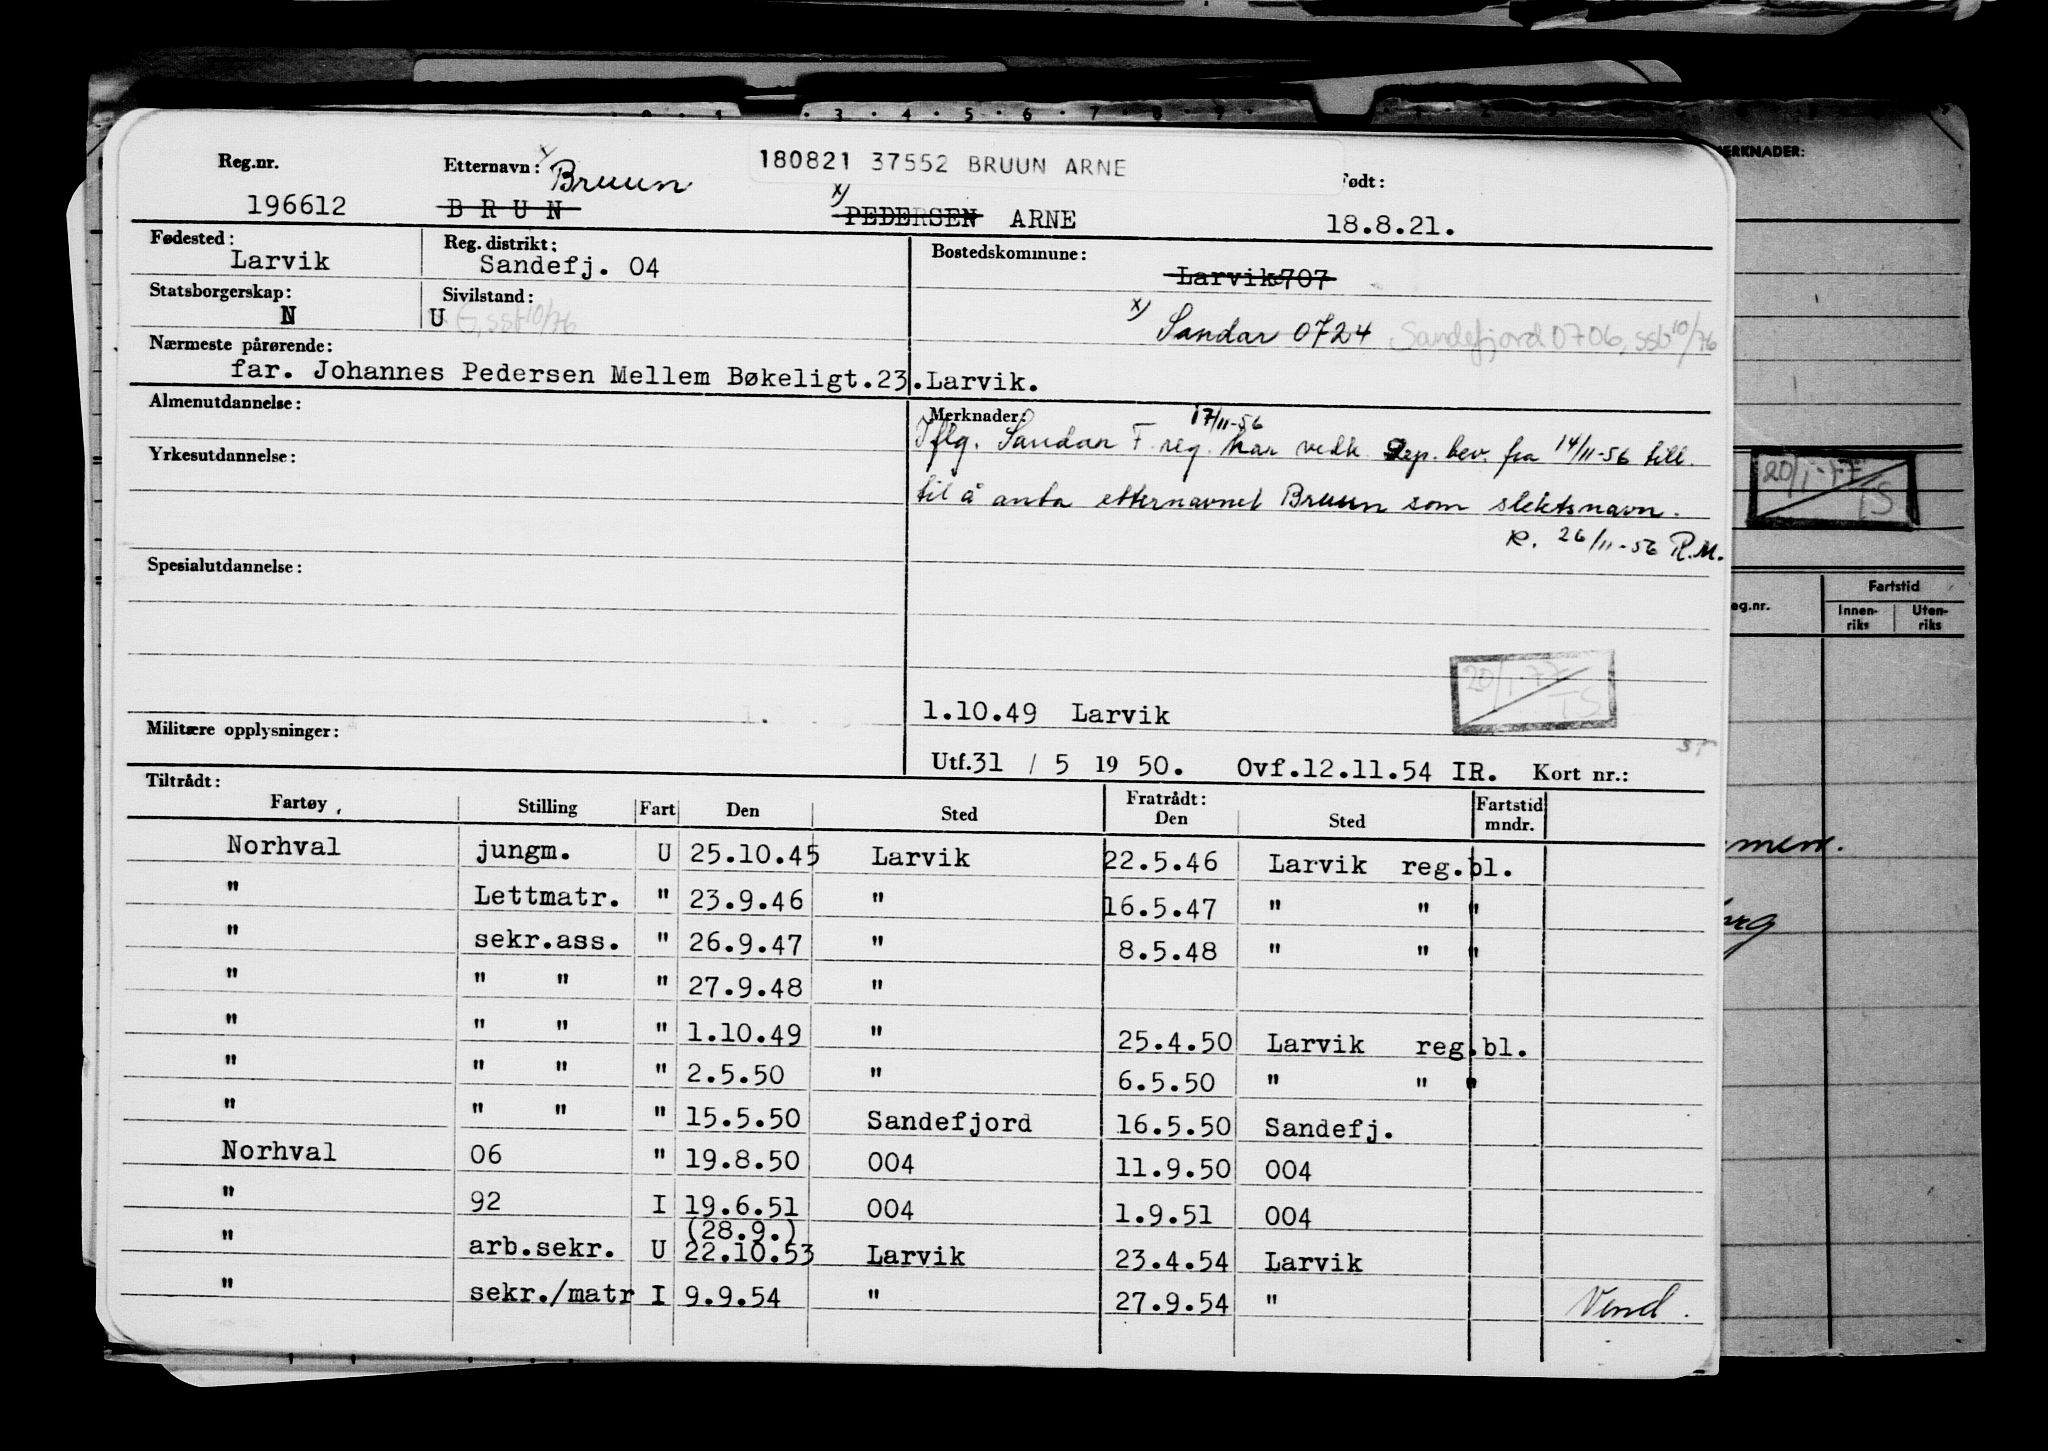 Reg.nr. Etternavn: x) Bruun 180821 37552 BRUUN ARNE Født:
196612 B R U N x) PEDERSEN ARNE 18.8.21.
Fødested: Larvik Reg. distrikt: Sandefj. 04 Bostedskommune: Larvik 707
Statsborgerskap: N Sivilstand: U G, ssb 10/76 x) Sandar 0724 Sandefjord 0706, ssb 10/76
Nærmeste pårørende:
far. Johannes Pedersen Mellem Bøkeligt.23.Larvik.
Almenutdannelse:
Yrkesutdannelse:
Spesialutdannelse:
Militære opplysninger:
Merknader: 17/11-56
Iflg. Sandar F.reg. har vedk. bev. fra 14/11-56 till.
til å anta etternavnet Bruun som slektsnavn.
R. 26/11-56 R.M.
20/1-77 TS
1.10.49 Larvik
Utf.31 / 5 19 50. Ovf.12.11.54 IR. Kort nr.:
Tiltrådt: Fratrådt:
Fartøy Stilling Fart Den Sted Den Sted Fartstid mndr.
Norhval jungm. U 25.10.45 Larvik 22.5.46 Larvik reg.bl.
" Lettmatr. " 23.9.46 " 16.5.47 " " "
" sekr.ass. " 26.9.47 " 8.5.48 " " "
" " " " 27.9.48 "
" " " " 1.10.49 " 25.4.50 Larvik reg.bl.
" " " " 2.5.50 " 6.5.50 " " "
" " " " 15.5.50 Sandefjord 16.5.50 Sandefj.
Norhval 06 " 19.8.50 004 11.9.50 004
" 92 I 19.6.51 004 1.9.51 004
(28.9.)
" arb.sekr. U 22.10.53 Larvik 23.4.54 Larvik
" sekr./matr I 9.9.54 " 27.9.54 " Vend.
ERKNADER:
20/1-77 TS
eg.nr. Fartstid
Innen-
riks
Uten-
riks